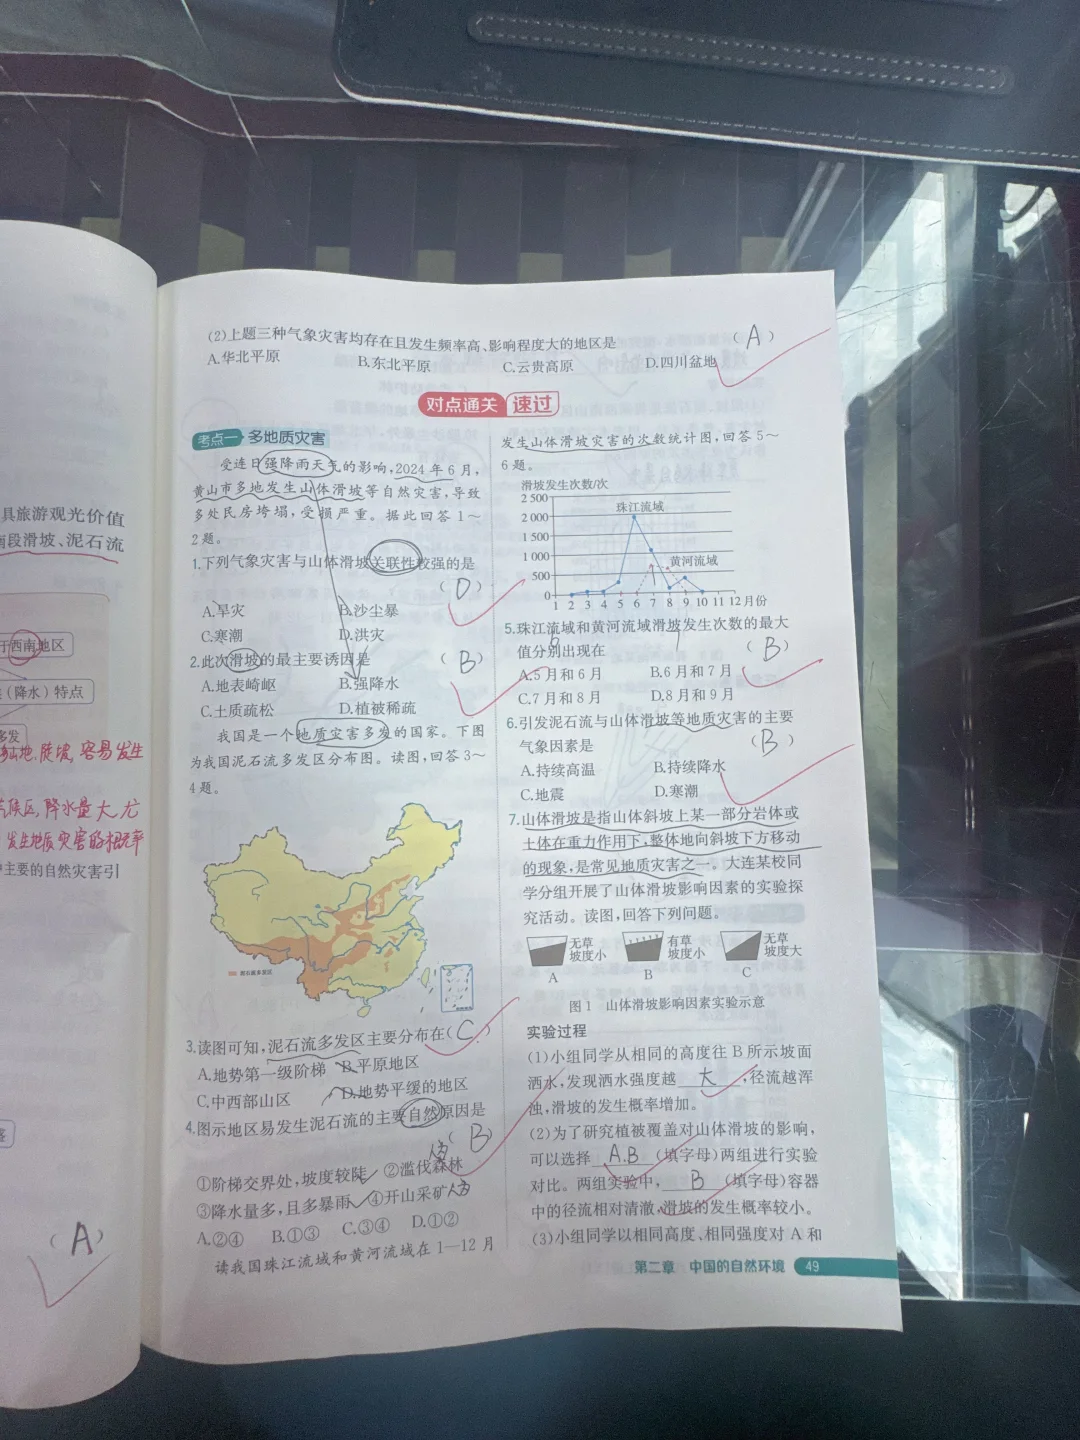 具旅游观光价值
段滑坡、泥石流
于西南地区
(降水)特点
多发
山地,陡坡,容易发生
降水量大,尤
发生地质灾害的概率
主要的自然灾害引
(A)
(2)上题三种气象灾害均存在且发生频率高、影响程度大的地区是 (A)
A.华北平原 B.东北平原 C.云贵高原 D.四川盆地
对点通关 速过
考点一 多地质灾害
受连日强降雨天气的影响,2024年6月,
黄山市多地发生山体滑坡等自然灾害,导致
多处民房垮塌,受损严重。据此回答1~
2题。
1.下列气象灾害与山体滑坡关联性较强的是
(D)
A.旱灾 B.沙尘暴
C.寒潮 D.洪灾
2.此次滑坡的最主要诱因是 (B)
A.地表崎岖 B.强降水
C.土质疏松 D.植被稀疏
我国是一个地质灾害多发的国家。下图
为我国泥石流多发区分布图。读图,回答3~
4题。
泥石流多发区
3.读图可知,泥石流多发区主要分布在(C)
A.地势第一级阶梯 B.平原地区
C.中西部山区 D.地势平缓的地区
4.图示地区易发生泥石流的主要自然原因是
(B)
人为
①阶梯交界处,坡度较陡 ②滥伐森林
③降水量多,且多暴雨 ④开山采矿 人为
A.②④ B.①③ C.③④ D.①②
读我国珠江流域和黄河流域在1—12月
发生山体滑坡灾害的次数统计图,回答5~
6题。
滑坡发生次数/次
2 500
2 000
1 500
1 000
500
0
珠江流域
黄河流域
1 2 3 4 5 6 7 8 9 10 11 12月份
5.珠江流域和黄河流域滑坡发生次数的最大
值分别出现在 (B)
6 7
A.5月和6月 B.6月和7月
C.7月和8月 D.8月和9月
6.引发泥石流与山体滑坡等地质灾害的主要
气象因素是 (B)
A.持续高温 B.持续降水
C.地震 D.寒潮
7.山体滑坡是指山体斜坡上某一部分岩体或
土体在重力作用下,整体地向斜坡下方移动
的现象,是常见地质灾害之一。大连某校同
学分组开展了山体滑坡影响因素的实验探
究活动。读图,回答下列问题。
无草 坡度小 有草 坡度小 无草 坡度大
A B C
图1 山体滑坡影响因素实验示意
实验过程
(1)小组同学从相同的高度往B所示坡面
洒水,发现洒水强度越 大 ,径流越浑
浊,滑坡的发生概率增加。
(2)为了研究植被覆盖对山体滑坡的影响,
可以选择 A.B (填字母)两组进行实验
对比。两组实验中, B (填字母)容器
中的径流相对清澈,滑坡的发生概率较小。
(3)小组同学以相同高度、相同强度对A和
第二章 中国的自然环境 49